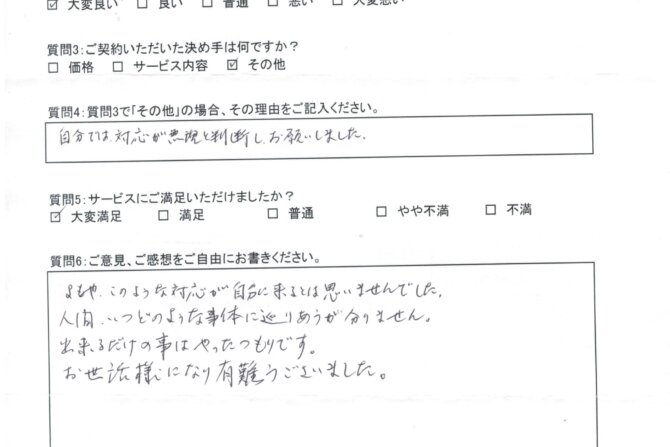 ☑ 大変良い □ 良い □ 普通 □ 悪い □ 大変悪い
質問3:ご契約いただいた決め手は何ですか?
□ 価格 □ サービス内容 ☑ その他
質問4:質問3で「その他」の場合、その理由をご記入ください。
自分では、対応が無理と判断し、お願いしました。
質問5:サービスにご満足いただけましたか?
☑ 大変満足 □ 満足 □ 普通 □ やや不満 □ 不満
質問6:ご意見、ご感想をご自由にお書きください。
まもや、このような対応が自分に来るとは思いませんでした。
人間、いつどのような事体に巡りあうが分りません。
出来るだけの事はやったつもりです。
お世話様になり有難うございました。